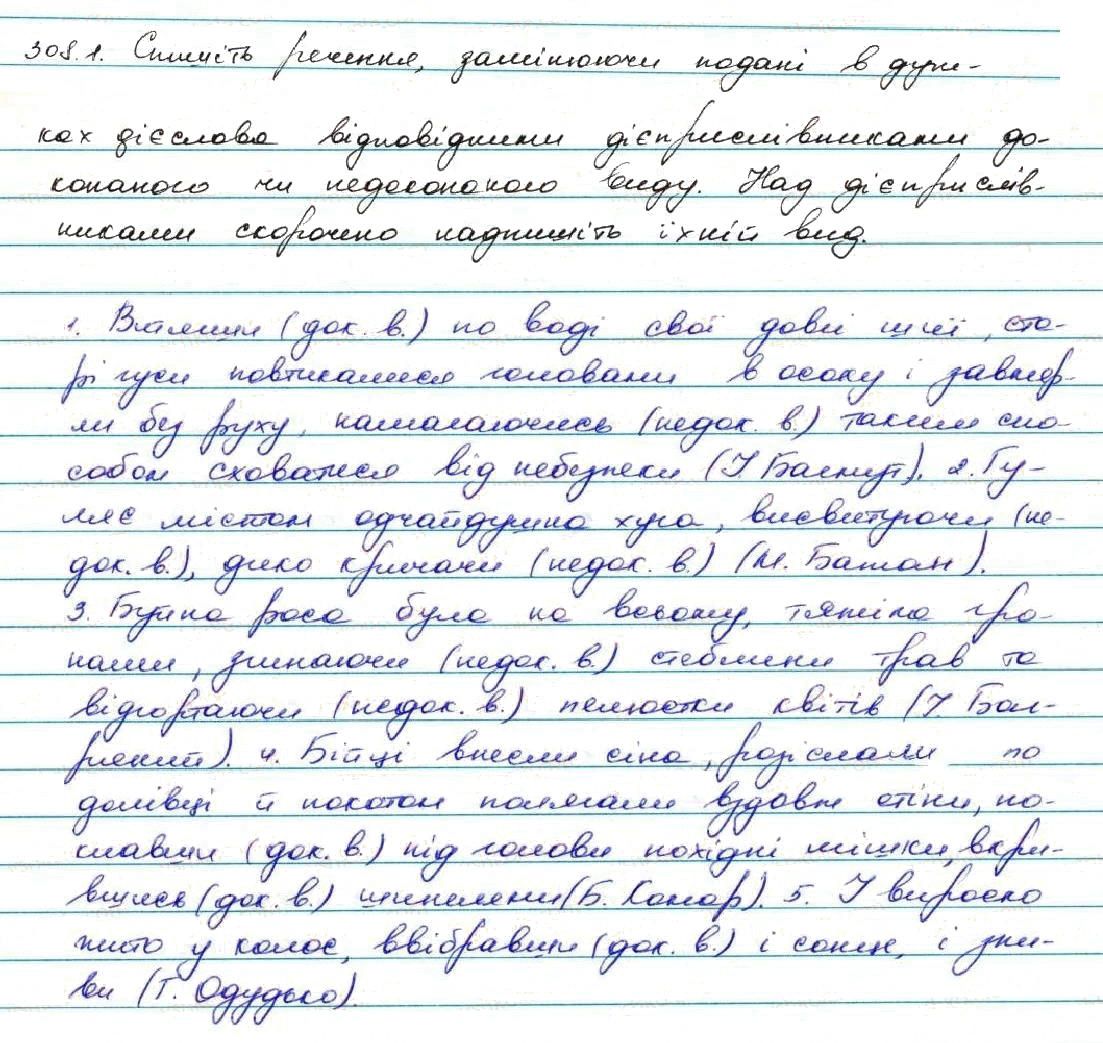 308.1. Спишіть речення, замінюючи подані в дуж-
ках дієслова відповідними дієприслівниками до-
конаного чи недоконаного виду. Над дієприслів-
никами скорочено надпишіть їхній вид.
1. Витягши (док. в.) по воді свої довгі шиї, ста-
рі гуси повтикалися головами в осоку і завмер-
ли без руху, намагаючись (недок. в.) таким спо-
собом сховатися від небезпеки (І. Багмут). 2. Гу-
ляє містом одчайдушна хуга, висвистуючи (не-
док. в.), дико кричачи (недок. в.) (М. Бажан).
3. Буйна роса була на всьому, тяжіла гро-
нами, згинаючи (недок. в.) стеблини трав та
відгортаючи (недок. в.) пелюстки квітів (І. Баг-
ряний). 4. Бійці внесли сіна, розіслали по
долівці й покотом полягали вздовж стіни, по-
клавши (док. в.) під голови похідні мішки, вкри-
вшись (док. в.) шинелями (Б. Комар). 5. І виросло
жито у колос, ввібравши (док. в.) і сонце, і зли-
ви (Г. Одудько).